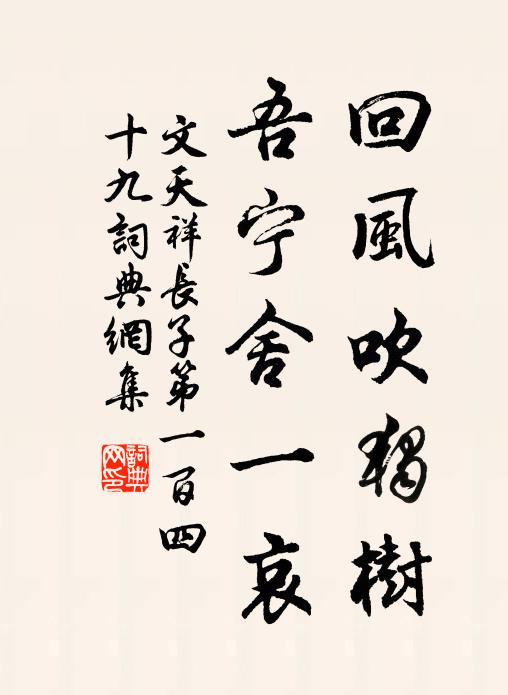 回風吹獨樹
吾宁舍一哀
文天祥長子第一百四
十九詞典網集
詞典
网印